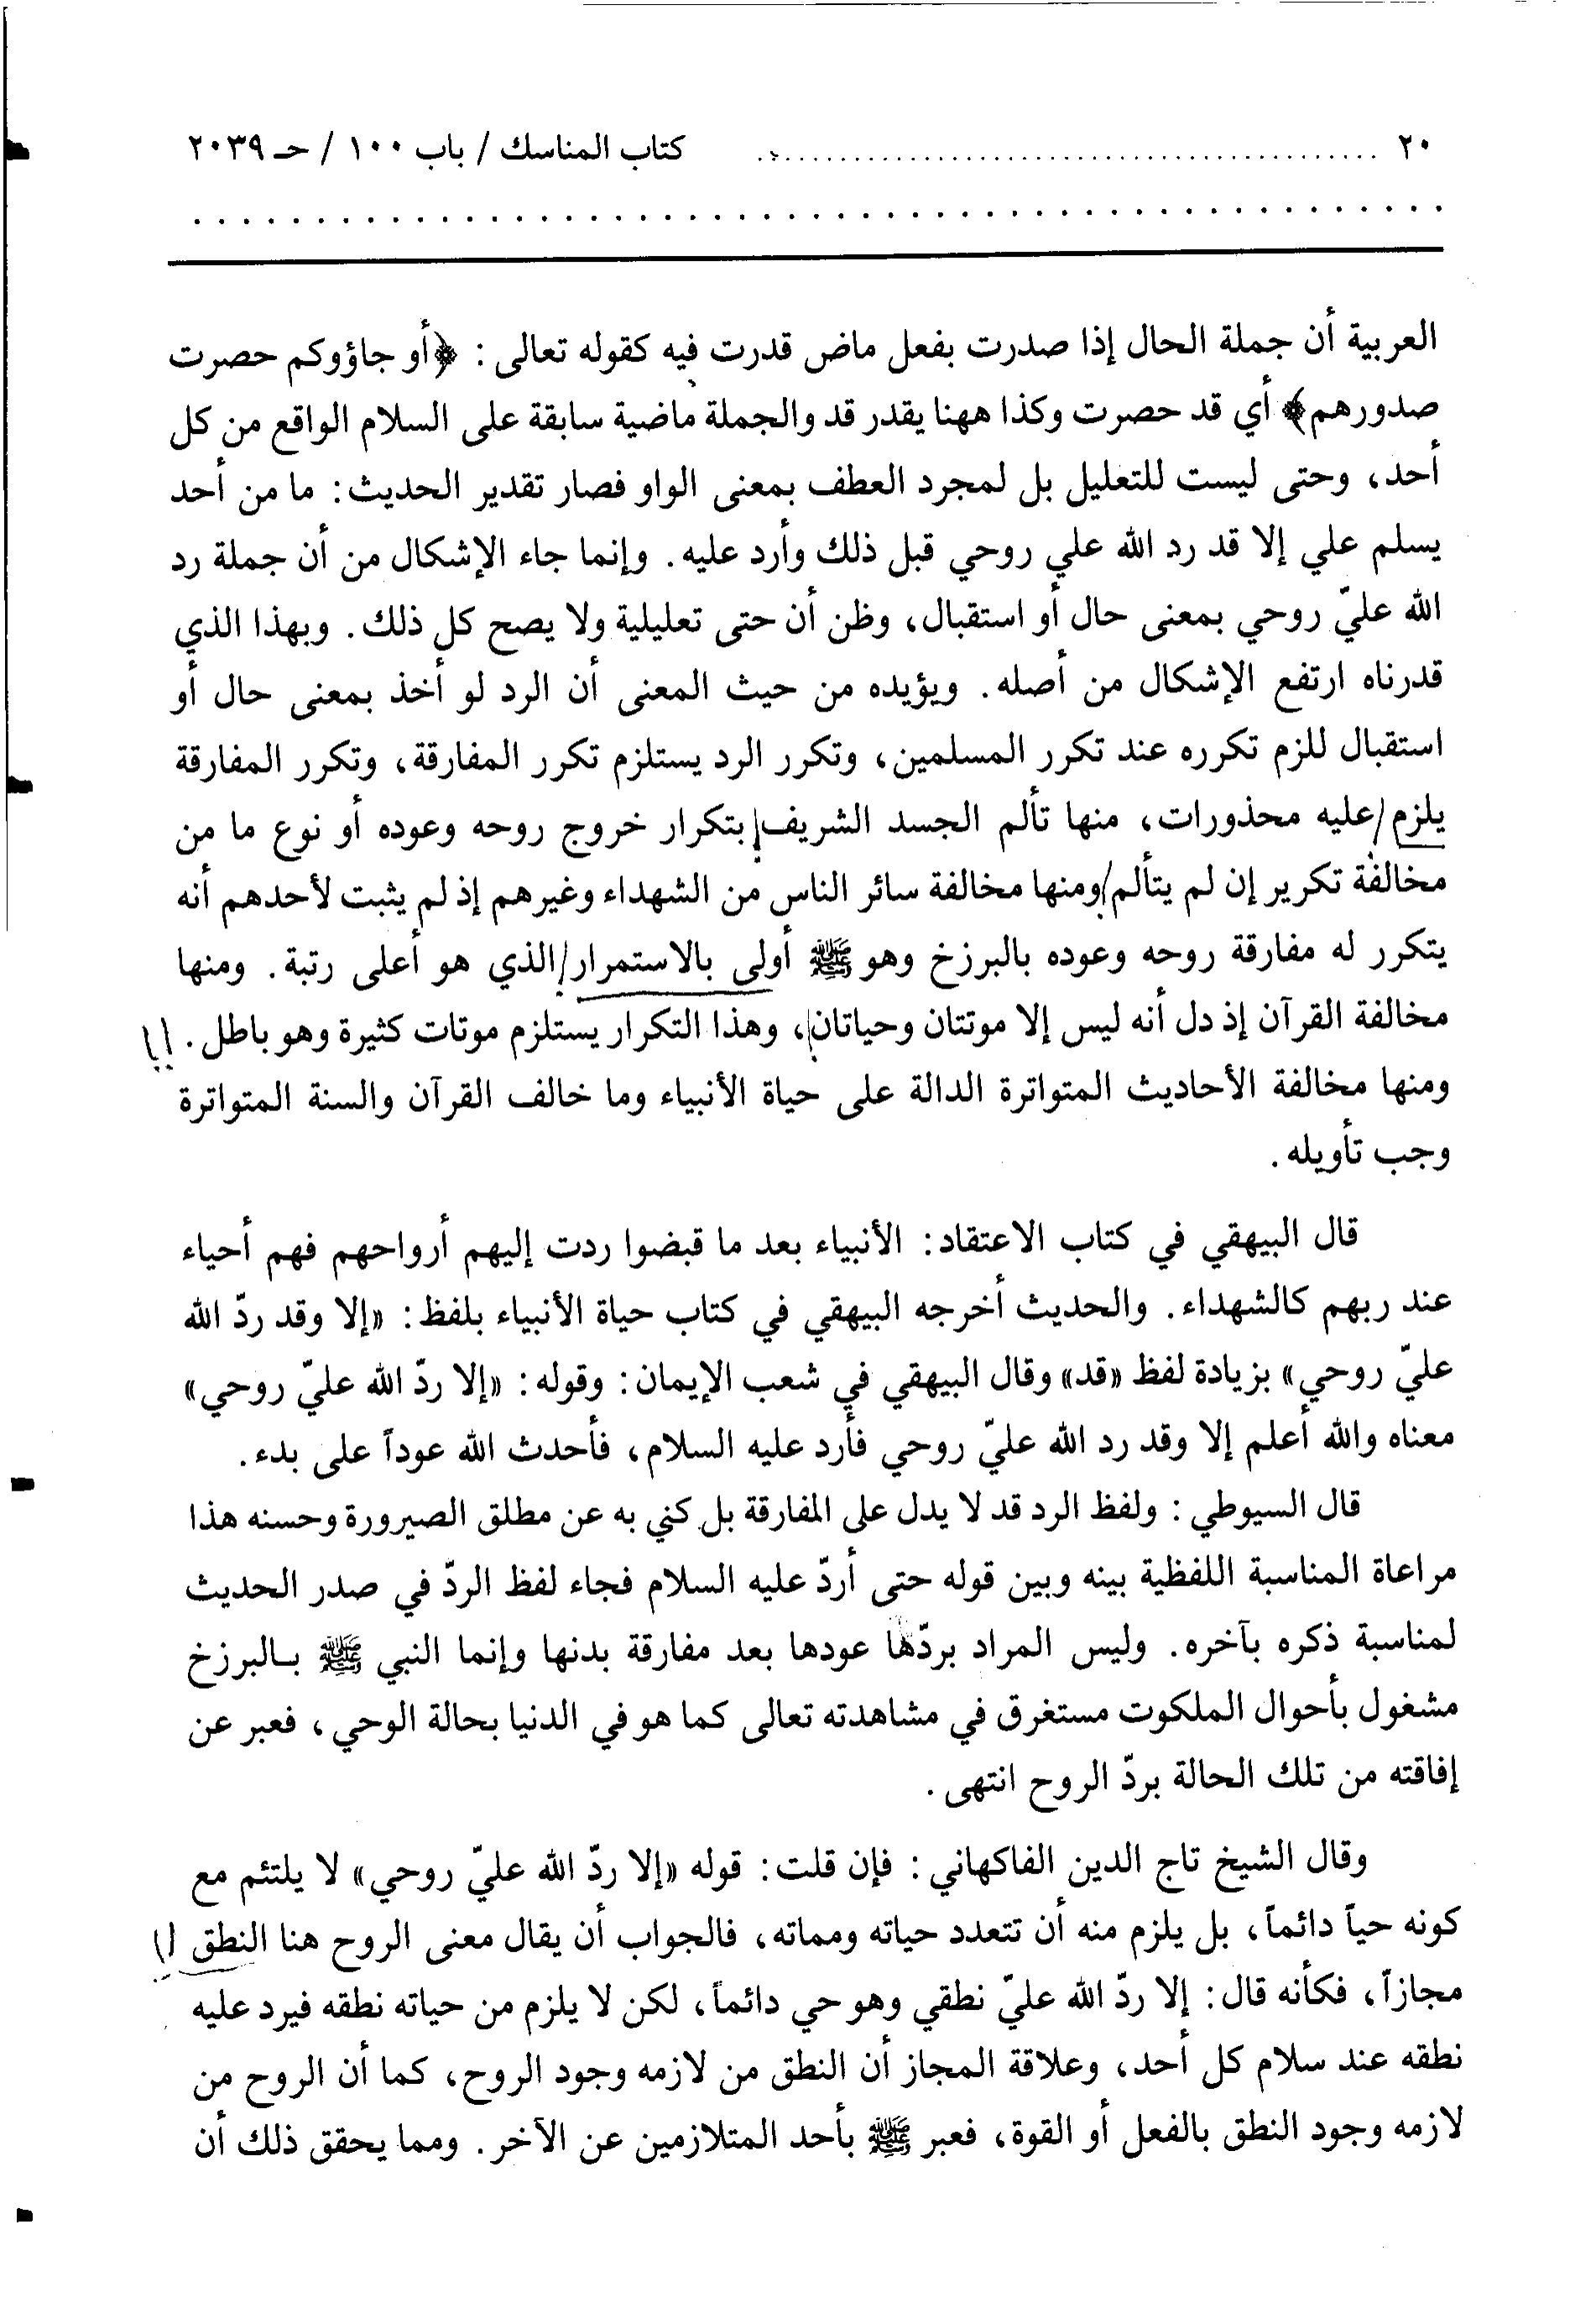 ٢٠ ................................................ كتاب المناسك / باب ١٠٠ / حـ ٢٠٣٩
. . . . . . . . . . . . . . . . . . . . . . . . . . . . . . . . . . . . . . . . . . . . . . . . . . .
العربية أن جملة الحال إذا صدرت بفعل ماض قدرت فيه كقوله تعالى: ﴿أو جاؤوكم حصرت
صدورهم﴾ أي قد حصرت وكذا ههنا يقدر قد والجملة ماضية سابقة على السلام الواقع من كل
أحد، وحتى ليست للتعليل بل لمجرد العطف بمعنى الواو فصار تقدير الحديث: ما من أحد
يسلم علي إلا قد رد الله علي روحي قبل ذلك وأرد عليه. وإنما جاء الإشكال من أن جملة رد
الله عليّ روحي بمعنى حال أو استقبال، وظن أن حتى تعليلية ولا يصح كل ذلك. وبهذا الذي
قدرناه ارتفع الإشكال من أصله. ويؤيده من حيث المعنى أن الرد لو أخذ بمعنى حال أو
استقبال للزم تكرره عند تكرر المسلمين، وتكرر الرد يستلزم تكرر المفارقة، وتكرر المفارقة
يلزم عليه محذورات، منها تألم الجسد الشريف بتكرار خروج روحه وعوده أو نوع ما من
مخالفة تكرير إن لم يتألم ومنها مخالفة سائر الناس من الشهداء وغيرهم إذ لم يثبت لأحدهم أنه
يتكرر له مفارقة روحه وعوده بالبرزخ وهو ﷺ أولى بالاستمرار الذي هو أعلى رتبة. ومنها
مخالفة القرآن إذ دل أنه ليس إلا موتتان وحياتان، وهذا التكرار يستلزم موتات كثيرة وهو باطل. !!
ومنها مخالفة الأحاديث المتواترة الدالة على حياة الأنبياء وما خالف القرآن والسنة المتواترة
وجب تأويله.
قال البيهقي في كتاب الاعتقاد: الأنبياء بعد ما قبضوا ردت إليهم أرواحهم فهم أحياء
عند ربهم كالشهداء. والحديث أخرجه البيهقي في كتاب حياة الأنبياء بلفظ: «إلا وقد ردّ الله
عليّ روحي» بزيادة لفظ «قد» وقال البيهقي في شعب الإيمان: وقوله: «إلا ردّ الله عليّ روحي»
معناه والله أعلم إلا وقد رد الله عليّ روحي فأرد عليه السلام، فأحدث الله عوداً على بدء.
قال السيوطي: ولفظ الرد قد لا يدل على المفارقة بل كني به عن مطلق الصيرورة وحسنه هذا
مراعاة المناسبة اللفظية بينه وبين قوله حتى أردّ عليه السلام فجاء لفظ الردّ في صدر الحديث
لمناسبة ذكره بآخره. وليس المراد بردّها عودها بعد مفارقة بدنها وإنما النبي ﷺ بالبرزخ
مشغول بأحوال الملكوت مستغرق في مشاهدته تعالى كما هو في الدنيا بحالة الوحي، فعبر عن
إفاقته من تلك الحالة بردّ الروح انتهى.
وقال الشيخ تاج الدين الفاكهاني: فإن قلت: قوله «إلا ردّ الله عليّ روحي» لا يلتئم مع
كونه حياً دائماً، بل يلزم منه أن تتعدد حياته ومماته، فالجواب أن يقال معنى الروح هنا النطق !!
مجازاً، فكأنه قال: إلا ردّ الله عليّ نطقي وهو حي دائماً، لكن لا يلزم من حياته نطقه فيرد عليه
نطقه عند سلام كل أحد، وعلاقة المجاز أن النطق من لازمه وجود الروح، كما أن الروح من
لازمه وجود النطق بالفعل أو القوة، فعبر ﷺ بأحد المتلازمين عن الآخر. ومما يحقق ذلك أن